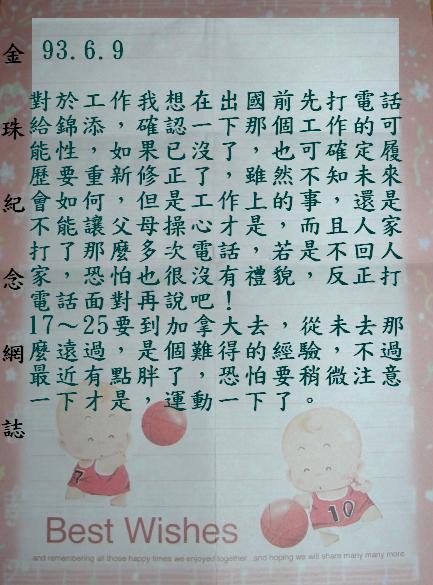 金珠紀念網誌
93.6.9
對於工作我想在出國前先打電話
給錦添，確認一下那個工作的可
能性，如果已沒了，也可確定履
歷要重新修正了，雖然不知未來
會如何，但是工作上的事，還是
不能讓父母操心才是，而且人家
打了那麼多次電話，若是不回人
家，恐怕也很沒有禮貌，反正打
電話面對再說吧！
17～25要到加拿大去，從未去那
麼遠過，是個難得的經驗，不過
最近有點胖了，恐怕要稍微注意
一下才是，運動一下了。
7
10
Best Wishes
and remembering all those happy times we enjoyed together...and hoping we will share many many more.